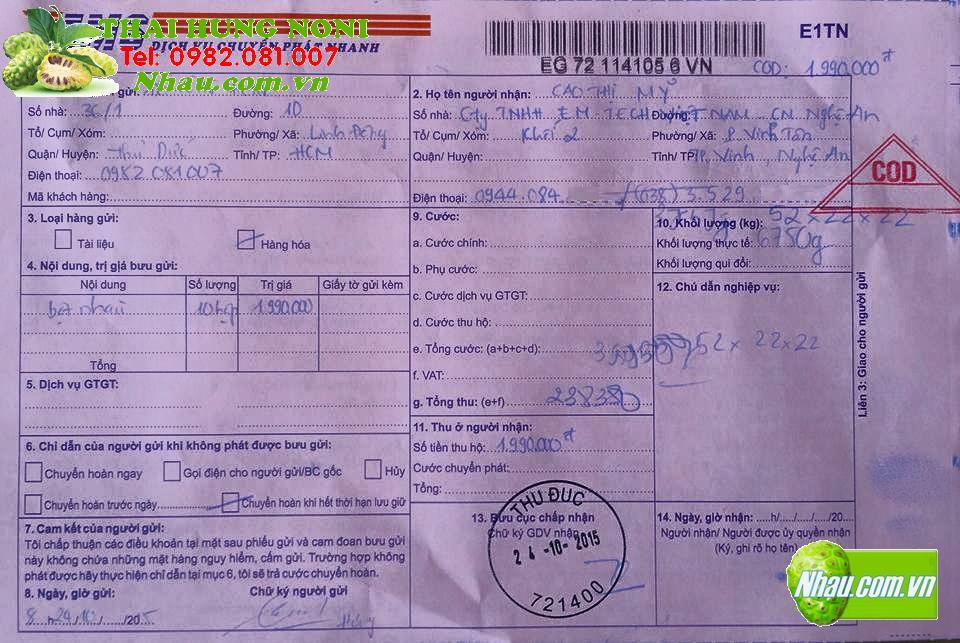 EMS
DỊCH VỤ CHUYỂN PHÁT NHANH
THAI HUNG NONI
Tel: 0982.081.007
Nhau.com.vn
EG 72 114105 6 VN
E1TN
COD: 1.990.000đ
gửi:
Số nhà: 36/1 Đường: 10
Tổ/ Cụm/ Xóm: Phường/ Xã: Linh Đông
Quận/ Huyện: Thủ Đức Tỉnh/ TP: HCM
Điện thoại: 0982 081 007
Mã khách hàng:
2. Họ tên người nhận: CAO THỊ MỸ
Số nhà: Cty TNHH EM-TECH VIỆT NAM CN Nghệ An Đường:
Tổ/ Cụm/ Xóm: Khối 2 Phường/ Xã: P. Vinh Tân
Quận/ Huyện: Tỉnh/ TP: TP. Vinh, Nghệ An
Điện thoại: 0944.084 /(038) 3.529
COD
3. Loại hàng gửi:
Tài liệu Hàng hóa
4. Nội dung, trị giá bưu gửi:
Nội dung Số lượng Trị giá Giấy tờ gửi kèm
bột nhàu 10 hộp 1.990.000
Tổng
5. Dịch vụ GTGT:
6. Chỉ dẫn của người gửi khi không phát được bưu gửi:
Chuyển hoàn ngay Gọi điện cho người gửi/BC gốc Hủy
Chuyển hoàn trước ngày Chuyển hoàn khi hết thời hạn lưu giữ
7. Cam kết của người gửi:
Tôi chấp thuận các điều khoản tại mặt sau phiếu gửi và cam đoan bưu gửi
này không chứa những mặt hàng nguy hiểm, cấm gửi. Trường hợp không
phát được hãy thực hiện chỉ dẫn tại mục 6, tôi sẽ trả cước chuyển hoàn.
8. Ngày, giờ gửi: Chữ ký người gửi
8 h 24/10/2015
9. Cước:
a. Cước chính:
b. Phụ cước:
c. Cước dịch vụ GTGT:
d. Cước thu hộ:
e. Tổng cước: (a+b+c+d): 52 x 22 x 22
f. VAT:
g. Tổng thu: (e+f)
10. Khối lượng (kg): 52 x 22 x 22
Khối lượng thực tế: 6750g
Khối lượng qui đổi:
11. Thu ở người nhận:
Số tiền thu hộ: 1.990.000đ
Cước chuyển phát:
Tổng:
12. Chú dẫn nghiệp vụ:
13. Bưu cục chấp nhận
Chữ ký GDV nhận
THU ĐUC
24-10-2015
721400
14. Ngày, giờ nhận: h / / /20
Người nhận/ Người được ủy quyền nhận
(Ký, ghi rõ họ tên)
Liên 3: Giao cho người gửi
Nhau.com.vn